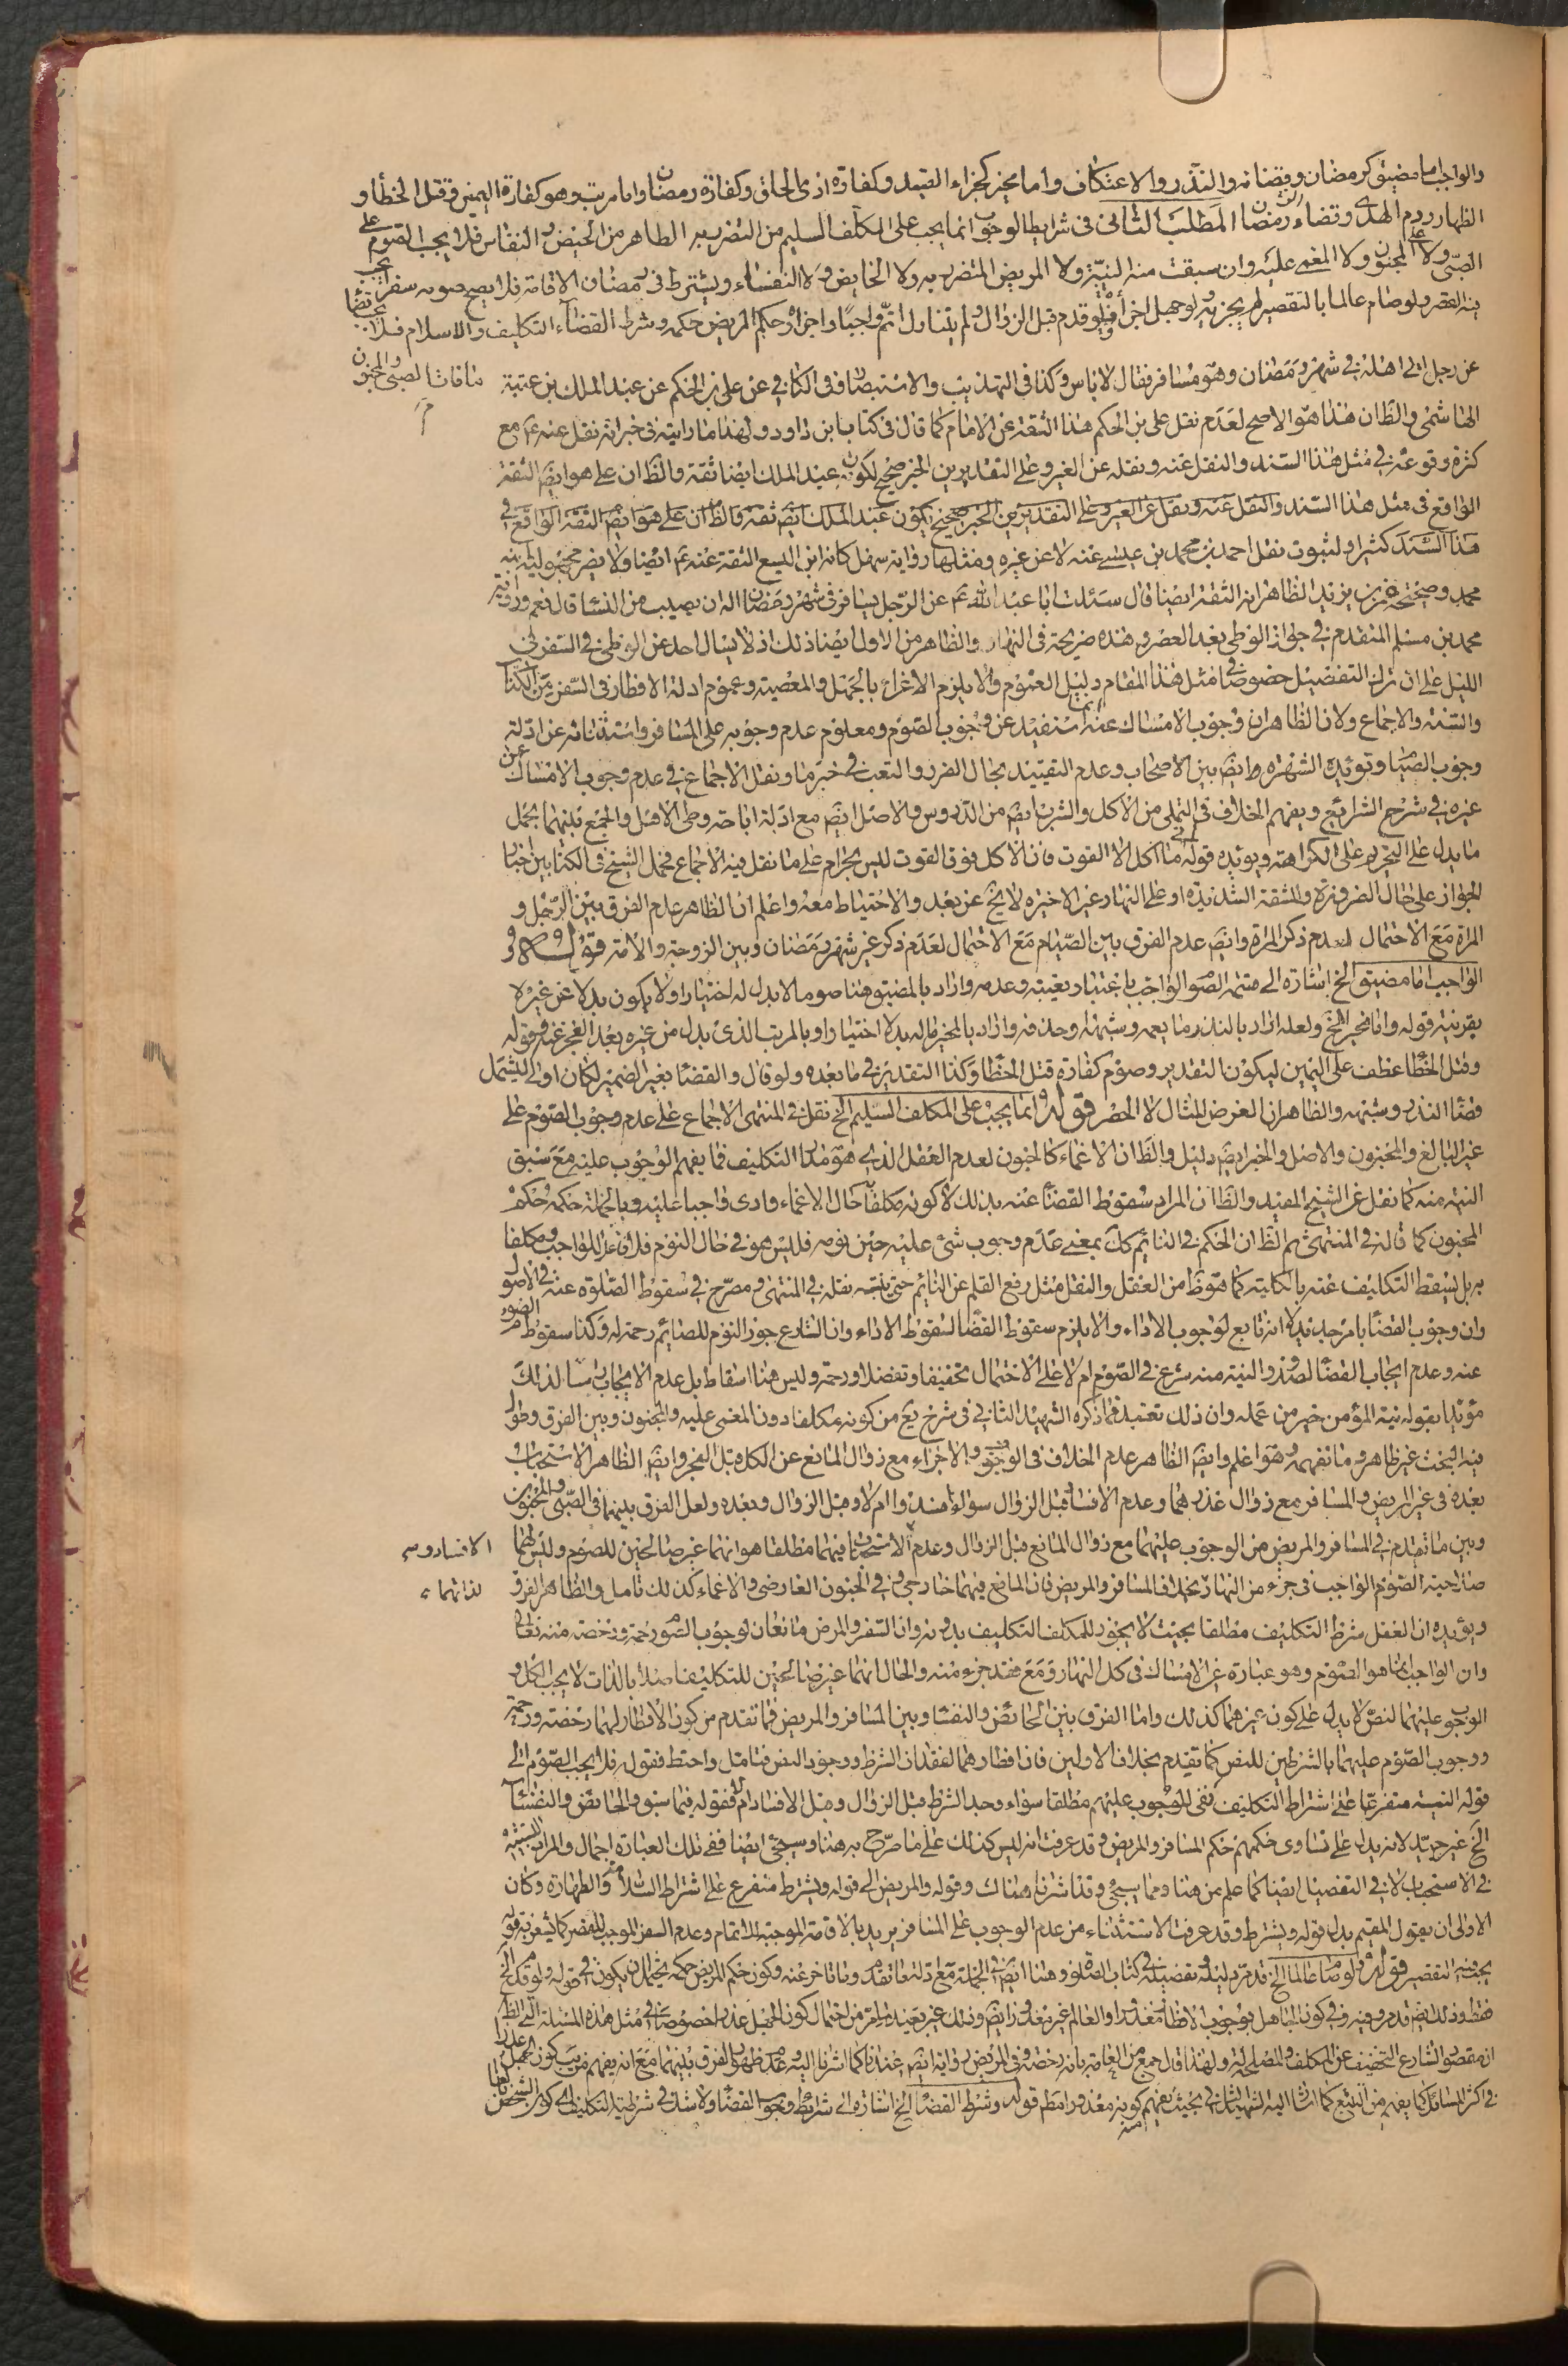 والواجب اما مضيق كرمضان وقضائه والنذر والاعتكاف واما مخير كجزاء الصيد وكفارة اذى الحلق وكفارة رمضان واما مرتب وهو كفارة اليمين وقتل الخطأ و
الظهار ودم الهدى وقضاء رمضان المطلب الثانى فى شرايط الوجوب انما يجب على المكلف السليم من التضرر به الطاهر من الحيض والنفاس فلا يجب الصوم على
الصبى ولا المجنون ولا المغمى عليه وان سبقت منه النية ولا المريض المتضرر به ولا الحايض ولا النفساء ويشترط فى رمضان الاقامة فلا يصح صومه سفرا يجب
فيه القصر ولو صام عالما بالتقصير لم يجزيه ولو جهل اجزأ ولو قدم قبل الزوال ولم يتناول اتم واجبا واجزاه وحكم المريض حكمه وشرط القضاء التكليف والاسلام فلا يجب قضا
ما فات الصبى والمجنون
عن رجل اتى اهله فى شهر رمضان وهو مسافر فقال لا باس وكذا فى التهذيب والاستبصار وفى الكافى عن على بن الحكم عن عبد الملك بن عتبة
الهاشمى والظان هذا هو الاصح لعدم نقل على بن الحكم هذا الثقة عن الامام كما قال فى كتاب ابن داود ولهذا ما رايته فى خبر انه نقل عنه ع مع
كثرة وقوعه فى مثل هذا السند والنقل عنه ونقله عن الغير وعلى التقديرين الخبر صحيح لكون عبد الملك ايضا ثقة والظان على هو ايض الثقة
الواقع فى مثل هذا السند والنقل عنه ونقل عن الغير وعلى التقديرين الخبر صحيح لكون عبد الملك ايض ثقة والظان على هو ايض الثقة الواقع فى
هذا السند كثيرا ولثبوت نقل احمد بن محمد بن عيسى عنه لا عن غيره ومثلها رواية سهل كانه ابن اليسع الثقة عنه ع ايضا ولا يضر مجهولية ابنه
محمد وصحيحة عمر بن يزيد الظاهر انه الثقة ايضا قال سئلت ابا عبد الله ع عن الرجل يسافر فى شهر رمضان اله ان يصيب من النسا قال نعم ورواية
محمد بن مسلم المتقدم فى جواز الوطى بعد العصر وهذه صريحة فى النهار والظاهر من الاول ايضا ذلك اذ لا يسال احد عن الوطى فى السفر فى
الليل على ان ترك التفصيل خصوصا فى مثل هذا المقام دليل العموم والا يلزم الاغراء بالجهل والمعصية وعموم ادلة الافطار فى السفر من الكتاب
والسنة والاجماع ولان الظاهر ان وجوب الامساك عنه انما استفيد عن وجوب الصوم ومعلوم عدم وجوبه على المسافر واستثنائه عن ادلة
وجوب الصيام وتؤيده الشهرة وايض بين الاصحاب وعدم التقييد بحال الضرر والتعب فى خبر ما ونقل الاجماع فى عدم وجوب الامساك عن
غيره فى شرح الشرايع ويفهم الخلاف فى التملى من الاكل والشرب ايض من الدروس والاصل ايض مع ادلة اباحة وطى الاهل والجمع بينهما بحمل
ما يدل على التحريم على الكراهة ويؤيده قوله ما اكل الا القوت فان الاكل فوق القوت ليس بحرام على ما نقل فيه الاجماع فحمل الشيخ فى الكتابين اخبار
الجواز على حال الضرورة والمشقة الشديدة او على النهار غير الاخيرة لا يخ عن بعد والاحتياط معه واعلم ان الظاهر عدم الفرق بين الرجل و
المراة مع الاحتمال لعدم ذكر المراة وايض عدم الفرق بين الصيام مع الاحتمال لعدم ذكر غير شهر رمضان وبين الزوجة والامة قوله و
الواجب اما مضيق الخ اشارة الى قسمة الصوم الواجب باعتبار تعينه وعدمه واراد بالمضيق هنا صوما لا بدل له اختيارا ولا يكون بدلا عن غيره لا
بقرينة قوله واما مخير الخ ولعله اراد بالنذر ما يعمه وشبهه وحذفه واراد بالمخير ماله بدلا اختيارا وبالمرتب الذى بدل من غيره بعد العجز عنه وقوله
وقتل الخطأ عطف على اليمين ليكون التقدير وصوم كفارة قتل الخطأ وكذا التقدير فى ما بعده ولو قال والقضا بغير الضمير لكان اولى ليشمل
قضا النذر وشبهه والظاهر ان الغرض المثال لا الحصر قوله انما يجب على المكلف السليم الخ نقل فى المنتهى الاجماع على عدم وجوب الصوم على
غير البالغ والمجنون والاصل والخبر ايض دليل والظان الاغماء كالجنون لعدم العقل الذى هو مدار التكليف فما يفهم الوجوب عليه مع سبق
النية منه كما نقل عن الشيخ المفيد والظان المراد سقوط القضا عنه بذلك لا كونه مكلفا حال الاغماء وادى واجبا عليه وبالجملة حكمه حكم
المجنون كما قاله فى المنتهى ثم الظان الحكم فى النائم كك بمعنى عدم وجوب شئ عليه حين نومه فليس هو فى حال النوم فلا فاعل للواجب ومكلفا
به بل يسقط التكليف عنه بالكلية كما هو ظ من العقل والنقل مثل رفع القلم عن النائم حتى ينتبه نقله فى المنتهى ومصرح فى سقوط الصلوة عنه فى الاصول
وان وجوب القضا بامر جديد لا انه تابع لوجوب الاداء والا يلزم سقوط القضا لسقوط الاداء وان الشارع جوز النوم للصائم رحمة له وكذا سقوط الصوم
عنه وعدم ايجاب القضا لصدور النية منه شرع فى الصوم ام لا على الاحتمال تخفيفا وتفضلا ورحمة وليس هنا اسقاط بل عدم الايجاب لذلك
مؤيدا بقوله نية المؤمن خير من عمله وان ذلك تعبد فما ذكره الشهيد الثانى فى شرح يع من كونه مكلفا دون المغمى عليه والمجنون وبين الفرق وطول
فيه البحث غير ظاهر وما نفهمه هو اعلم وايض الظاهر عدم الخلاف فى الوجوب والاجزاء مع زوال المانع عن الكل قبل الفجر وايض الظاهر الاستحباب
بعده فى غير المريض والمسافر مع زوال عذرهما وعدم الافساد قبل الزوال سواء افسدوا ام لا وقبل الزوال وبعده ولعل الفرق بينهما فى الصبى والمجنون
وبين ما تقدم فى المسافر والمريض من الوجوب عليهما مع زوال المانع قبل الزوال وعدم الاستحباب فيهما مطلقا هو انهما غير صالحين للصوم وليس لهما
الافساد وسه
صلاحية الصوم الواجب فى جزء من النهار بخلاف المسافر والمريض فان المانع فيهما خارجى وفى الجنون العارضى والاغماء كذلك تامل والظاهر الفرق
لذاتهما ء
ويؤيده ان العقل شرط التكليف مطلقا بحيث لا يجوز للمكلف التكليف بدونه وان السفر والمرض مانعان لوجوب الصوم رحمة ورخصة منه تعالى
وان الواجب انما هو الصوم وهو عبارة عن الامساك فى كل النهار ومع فقد جزء منه والحال انهما غير صالحين للتكليف اصلا بالذات لا يجب الكل و
الوجوب عليهما لنص لا يدل على كون غيرهما كذلك واما الفرق بين الحائض والنفسا وبين المسافر والمريض فما تقدم من كون الافطار لهما رخصة ورحمة
ووجوب الصوم عليهما بالشرطين للنص كما تقدم بخلاف الاولين فان افطارهما لفقدان الشرط ووجود النص فتامل واحتط فقوله فلا يجب الصوم الى
قوله النية متفرعا على اشتراط التكليف نفى للوجوب عليهم مطلقا سواء وجد الشرط قبل الزوال وقبل الافساد ام لا فقوله فيما سبق والحائض والنفساء
الخ غير جيد لانه يدل على تساوى حكمهم حكم المسافر والمريض وقد عرفت انه ليس كذلك على ما صرح به هنا وسيجئ ايضا ففى تلك العبارة اجمال والمراد التشبيه
فى الاستحباب لا فى التفصيل ايضا كما علم من هنا ومما يسجئ وقد اشرنا هناك وقوله والمريض الى قوله ويشترط متفرع على اشتراط السلامة والطهارة وكان
الاولى ان يقول المقيم بدل قوله ويشترط وقد عرفت الاستثناء من عدم الوجوب على المسافر يريد بالاقامة الموجبة للاتمام وعدم السفر الموجب للقصر كما يشعر به قوله
يجب فيه التقصير قوله ولو صام عالما الخ قد مر دليله وتفصيله فى كتاب الصلوة وهنا ايض فى الجملة مع دلالة ما تقدم وما تاخر عنه وكون حكم المريض حكمه يحتمل ان يكون فى قوله ولو قدم الخ
فقط وذلك ايض قد مر وفيه وفى كون الجاهل بوجوب الافطار معذورا والعالم غير معذور ايض وذلك غير بعيد لما مر من احتمال كون الجهل عذرا خصوصا فى مثل هذه المسئلة التى الظ
ان مقصود الشارع التخفيف عن المكلف والمصلحة له ولهذا قال جمع من العامة بانه رخصة وفى المريض رواية ايض عندنا كما اشرنا اليه وعدم ظهور الفرق بينهما مع انه يفهم قرب كون الجهل عذرا
فى اكثر المسائل كما يفهم من التتبع كما اشار اليه الشهيد الثانى بحيث يفهم كونه معذورا مط قوله وشرط القضا الخ اشارة الى شرايط وجوب القضا ولا شك فى شرطية التكليف اى كون الشخص بالغا
منه